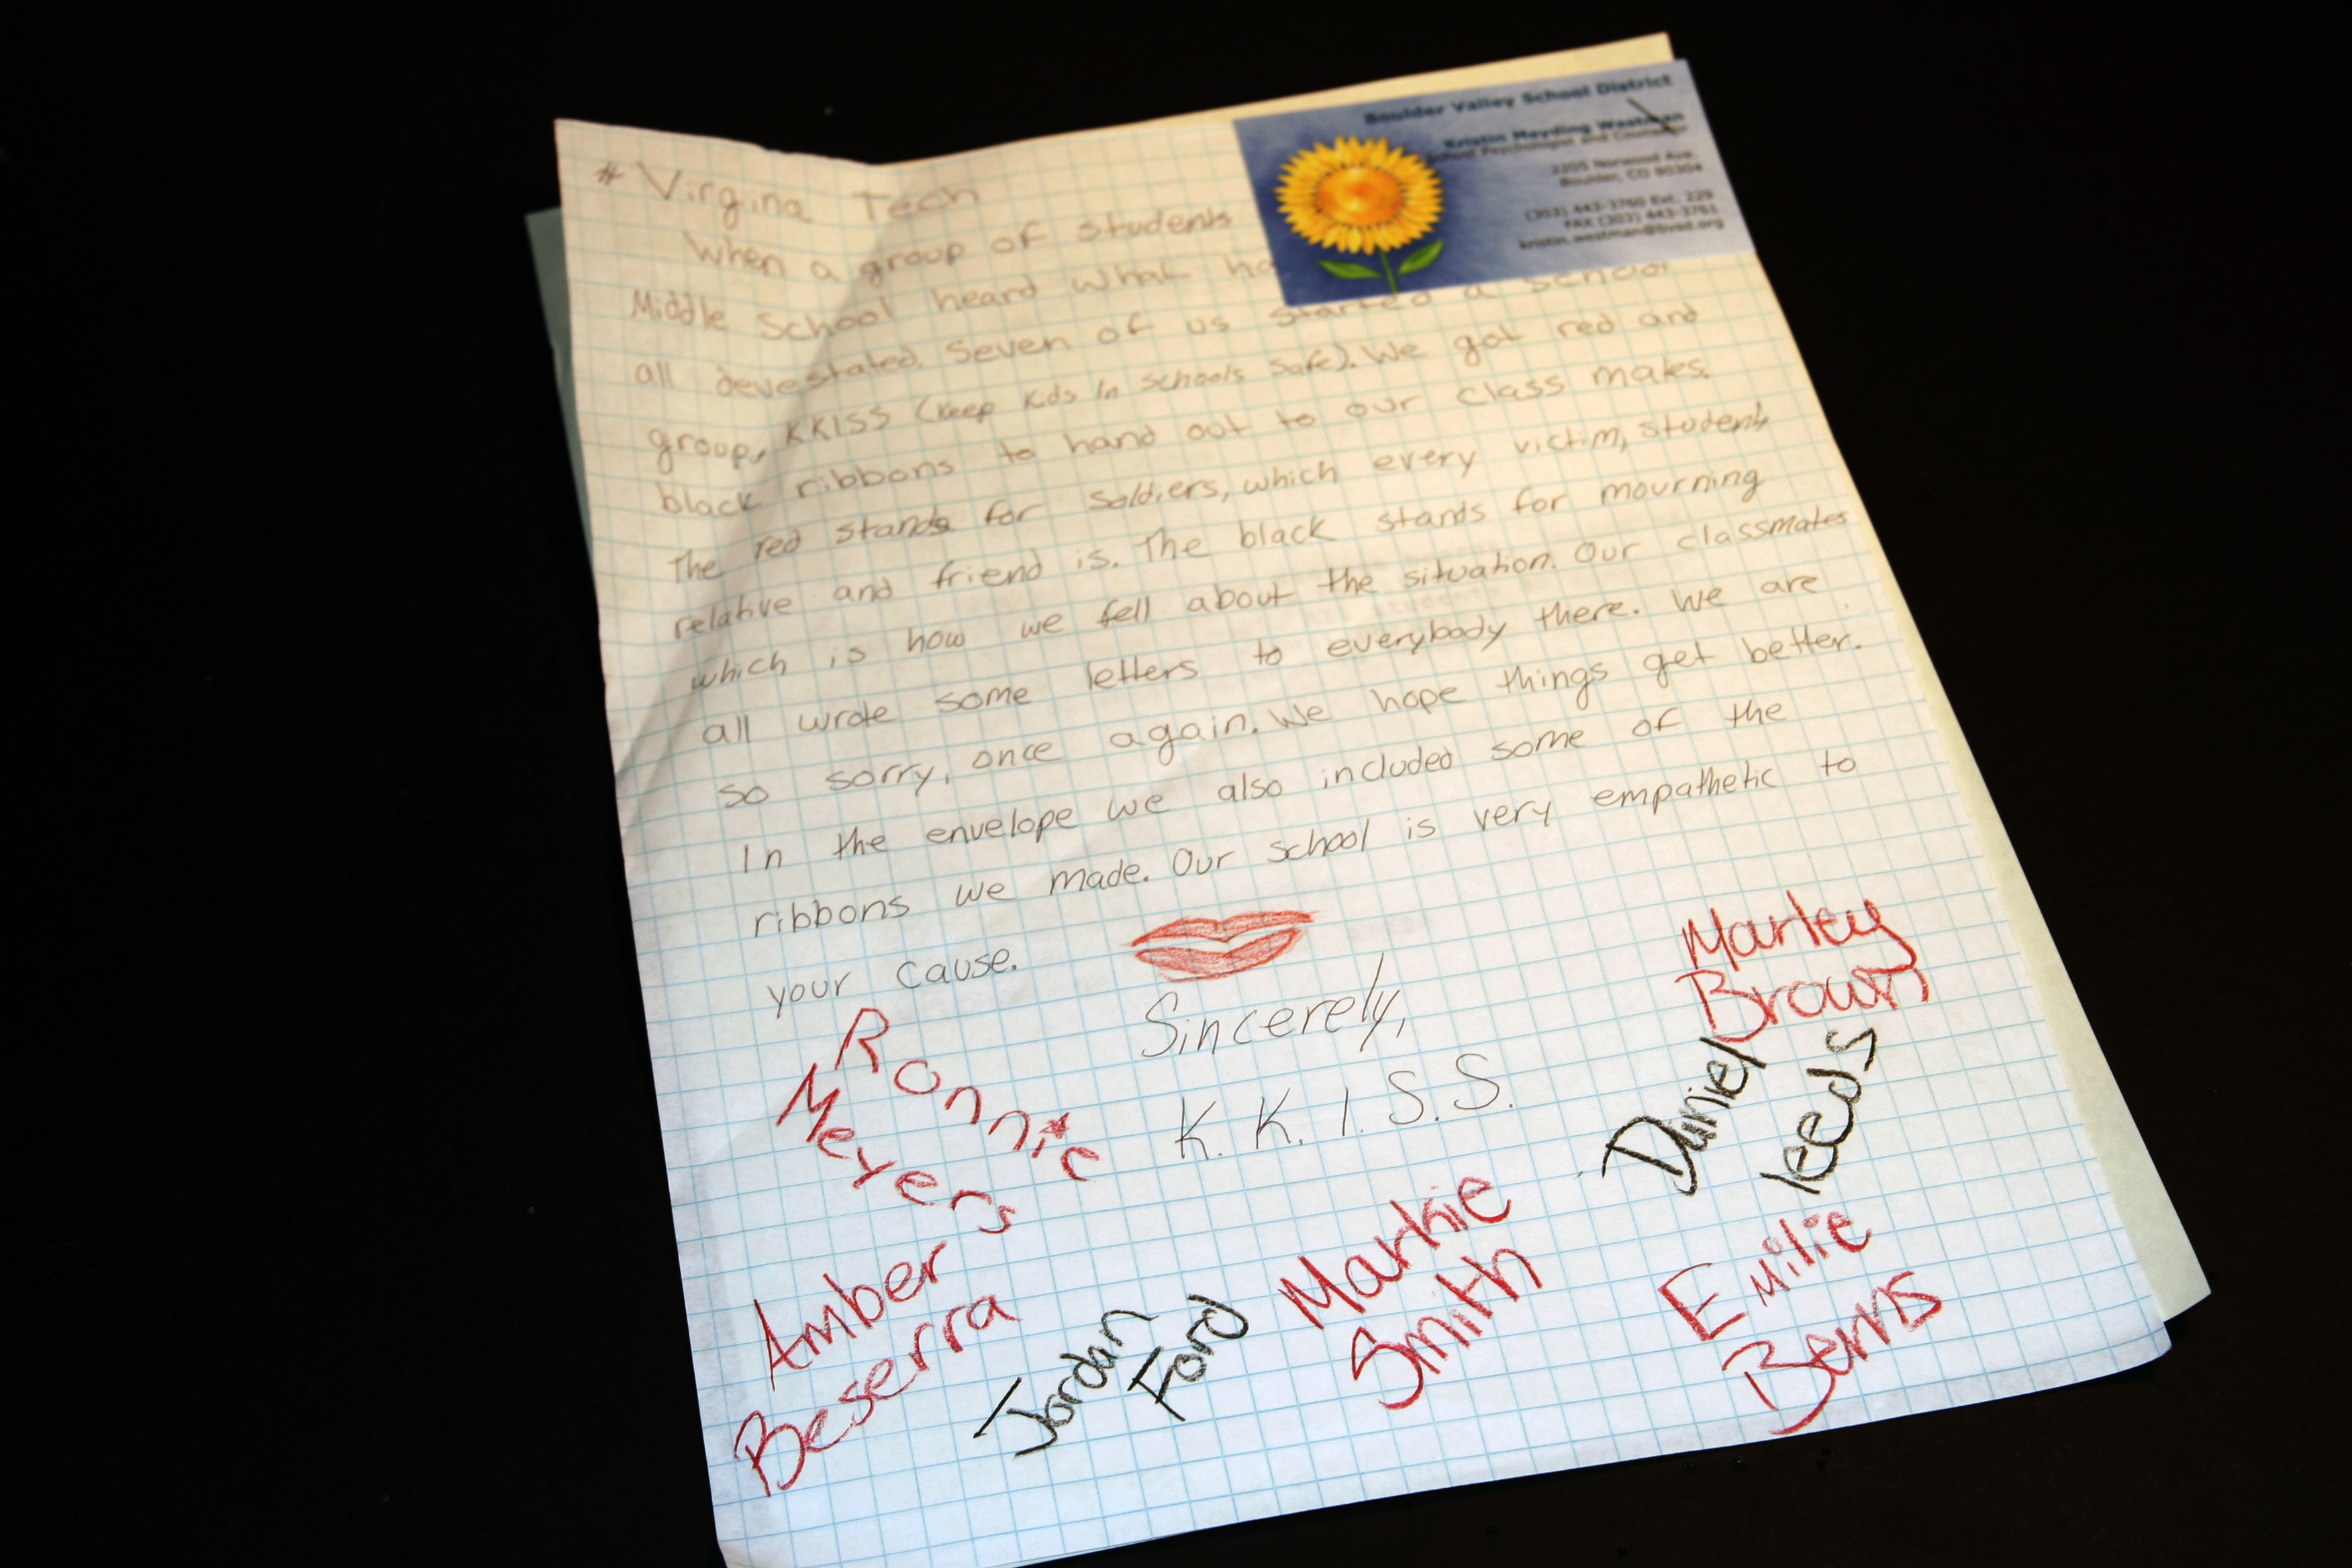 # Virgina Tech
When a group of students
Middle School heard what
all devestated. Seven of us started a school
group, KKISS (Keep Kids In Schools Safe). We got red and
black ribbons to hand out to our class mates.
The red stands for soldiers, which every victim, student,
relative and friend is. The black stands for mourning
which is how we fell about the situation. Our classmates
all wrote some letters to everybody there. We are
so sorry, once again. We hope things get better.
In the envelope we also included some of the
ribbons we made. Our school is very empathetic to
your cause.
Sincerely,
K. K. I. S. S.
Ronnie
Meyers
Amber
Beserra
Jordan
Ford
Markie
Smith
Marley
Brown
Daniel
leeds
Emilie
Berns
Boulder Valley School District
Kristin Heyding Westman
School Psychologist and Counselor
2205 Norwood Ave.
Boulder, CO 80304
(303) 443-3760 Ext. 229
FAX (303) 443-3761
kristin.westman@bvsd.org